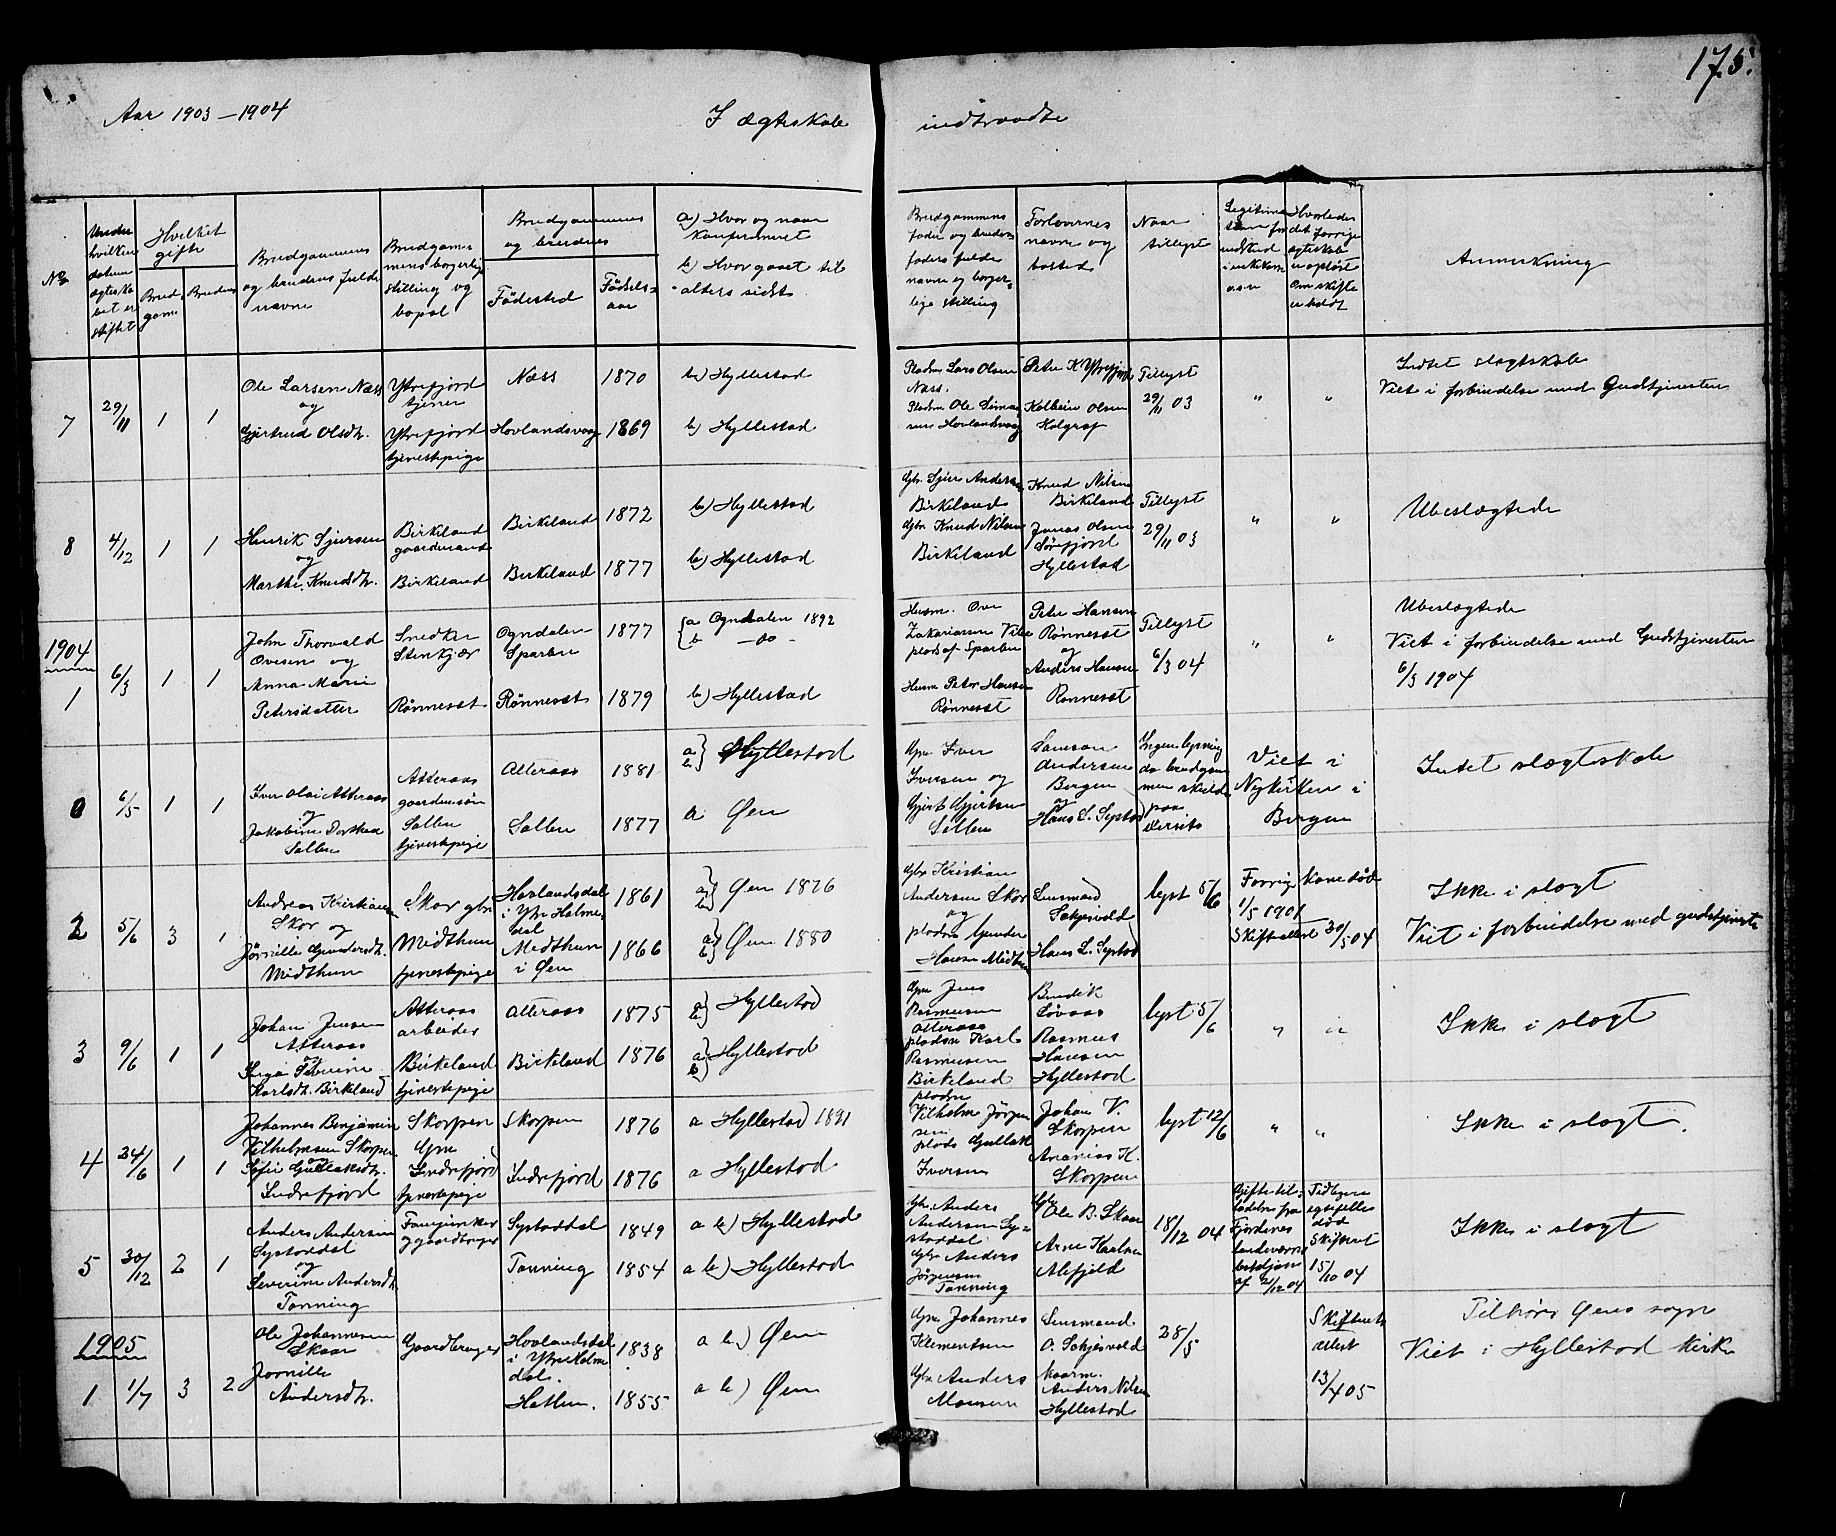 175.
Aar 1903-1904
I ægteskab indtraadte
No
Under hvilken datum ægteskabet er stiftet
Hvilket gifte
Brudgoms
Brudens
Brudgommens og brudens fulde navne
Brudgommens borgerlige stilling og bopæl
Brudgommens og brudens
Fødested
Fødselsaar
a) Hvor og naar konfirmeret
b) Hvor gaaet til alters sidst
Brudgommens fader og brudens faders fulde navne og borgerlige stilling
Forlovernes navne og bosted
Naar tillyst
Anmerkning
7
29/11
1
1
Ole Larsen Næss
og
Gjertrud Olsdtr.
Ytrefjord
tjener
Ytrefjord
tjenestepige
Næss
Hovlandsvaag
1870
1869
b) Hyllestad
b) Hyllestad
Pladsm Lars Olsen
Næss.
Pladsm Ole Simonsens Hovlandsvaag
Peter K Ytrefjord
Kolbein Olsen
Kolgrof
Tillyst
29/11 03
"
"
Intet slægtskab
Viet i forbindelse med Gudstjenesten
8
4/12
1
1
Henrik Sjursen
og
Marthe Knudsdtr.
Birkeland
gaardmand
Birkeland
Birkeland
Birkeland
1872
1877
b) Hyllestad
b) Hyllestad
Gbr Sjur Andersen
Birkeland
Gbr Knud Nilsen
Birkeland
Knud Nilsen
Birkeland
Jonas Olsen
Sørefjord
Hyllestad
Tillyst
29/11 03
"
"
Ubeslægtede
1904
1
6/3
1
1
John Thorvald
Ovesen og
Anna Marie
Petersdatter
Smed
Stenkjær
Rønneset
Ogndalen
Sparbu
Rønneset
1877
1879
a Ogndalen 1892
b - do -
b) Hyllestad
Husm. Ove
Zakariassen
plads af Sparbu
Husm Peter Hansen
Rønneset
Peter Hansen
Rønneset
og
Anders Hansen
Rønneset
Tillyst
6/3 04
"
"
Ubeslægtede
Viet i forbindelse med Gudstjenesten
6/3 1904
0
6/5
1
1
Iver Olai Atteraas
og
Jakobine Dorthea
Sollen
Atteraas
gaardmansøn
Sollen
tjenestepige
Atteraas
Sollen
1881
1877
a b} Hyllestad
a Øen
Gbr Iver
Iversen og
Gjert Gjertsen
Sollen
Samson
Andersen
Bergen
og
Hans L. Systad
Ingen lysning
da brudgommen skulde
paa
Viet i
Nykirken i
Bergen
Intet slægtskab
2
5/6
3
1
Andreas Kristiansen
Skor og
Midthun
Skor gbr
Midthun
tjenestepige
Hovlandsdal
i Ytre Holmedal
Midthun
i Øen
1861
1866
a) b) Øen 1876
a) b) Øen 1880
Gbr Kristian
Andersen Skor
og
pladsm Gunder
Hansen Midthun
Lensmand
Hans L. Systad
lyst 5/6
Forrige kone død
1/5 1901
Skifteattest 30/5 04
Ikke i slægt
Viet i forbindelse med gudstjeneste
3
9/6
1
1
Johan Jensen
Atteraas
og
Karlsdtr. Birkeland
Atteraas
arbeider
Birkeland
tjenestepige
Atteraas
Birkeland
1875
1876
a b) Hyllestad
a b) Hyllestad
Gbr Jens
Rasmussen
Atteraas
pladsm Karl
Rasmussen
Birkeland
Bendik
Løvaas
Rasmus
Hansen
Hyllestad
lyst 5/6
"
"
Ikke i slægt
4
24/6
1
1
Johannes Benjamin
Vilhelmsen Skorpen
og
Sofie Gullaksdtr.
Indrefjord
Skorpen
Gbr
Indrefjord
tjenestepige
Skorpen
Indrefjord
1876
1876
a Hyllestad 1891
a Hyllestad
pladsm
Vilhelm Jørgensen
plads Gullak
Iversen
Johan V.
Skorpen
Ananias H.
Skorpen
lyst 12/6
"
"
Ikke i slægt.
5
30/12
2
1
Anders Andersen
Systaddal
og
Severine Andersdtr.
Tønning
gaardbruger
Systaddal
Tønning
1849
1854
a b) Hyllestad
a b) Hyllestad
Gbr. Anders
Andersen Systaddal
Gbr Anders
Jørgensen
Tønning
Gbr
Ole B. Skaar
Arne Karlsen
Alefjeld
18/12 04
af 2/12 04
Tidligere
død
15/10 04
Ikke i slægt
1905
1
1/7
3
2
Ole Johannesen
Skaar
Andersdtr.
Gaardbruger
Hovlandsdal
i Ytre Holmedal.
Hatlem.
1838
1855
a b) Øen
a b) Øen
Gbr Johannes
Klementsen
Gbr Anders
Monsen
Lensmand
Anders Nilsen
Hyllestad
28/5
Skifterets
attest
13/4 05
Tilhører Øens sogn
Viet i Hyllestad kirke